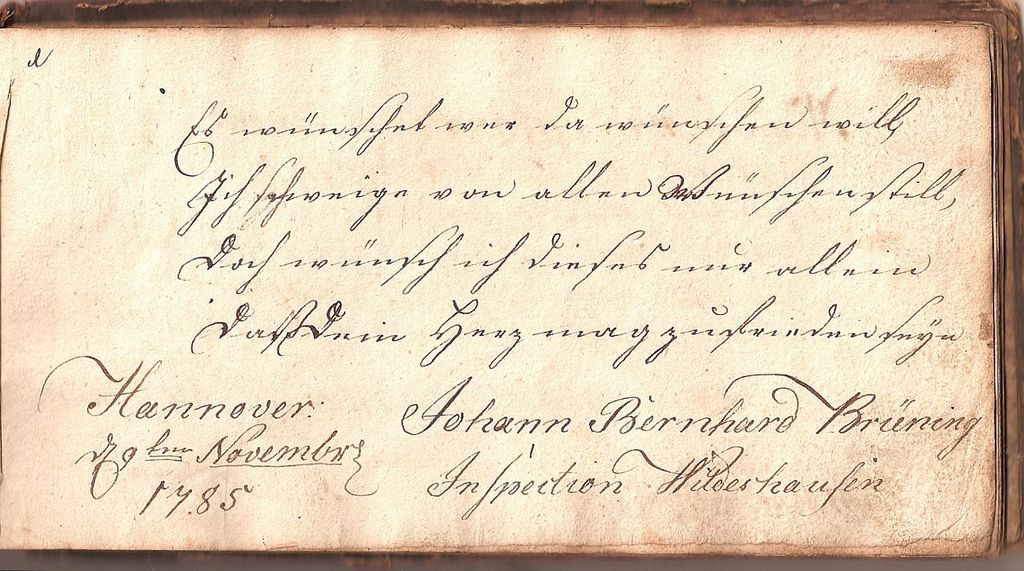 Es wünschet wer da wünschen will,
Ich schweige von allen Wünschen still,
Doch wünsch ich dieses nur allein
Daß Dein Herz mag zufrieden seyn
Hannover:
d 9ten Novembr
1785
Johann Bernhard Brüning
Inspection Wildeshausen